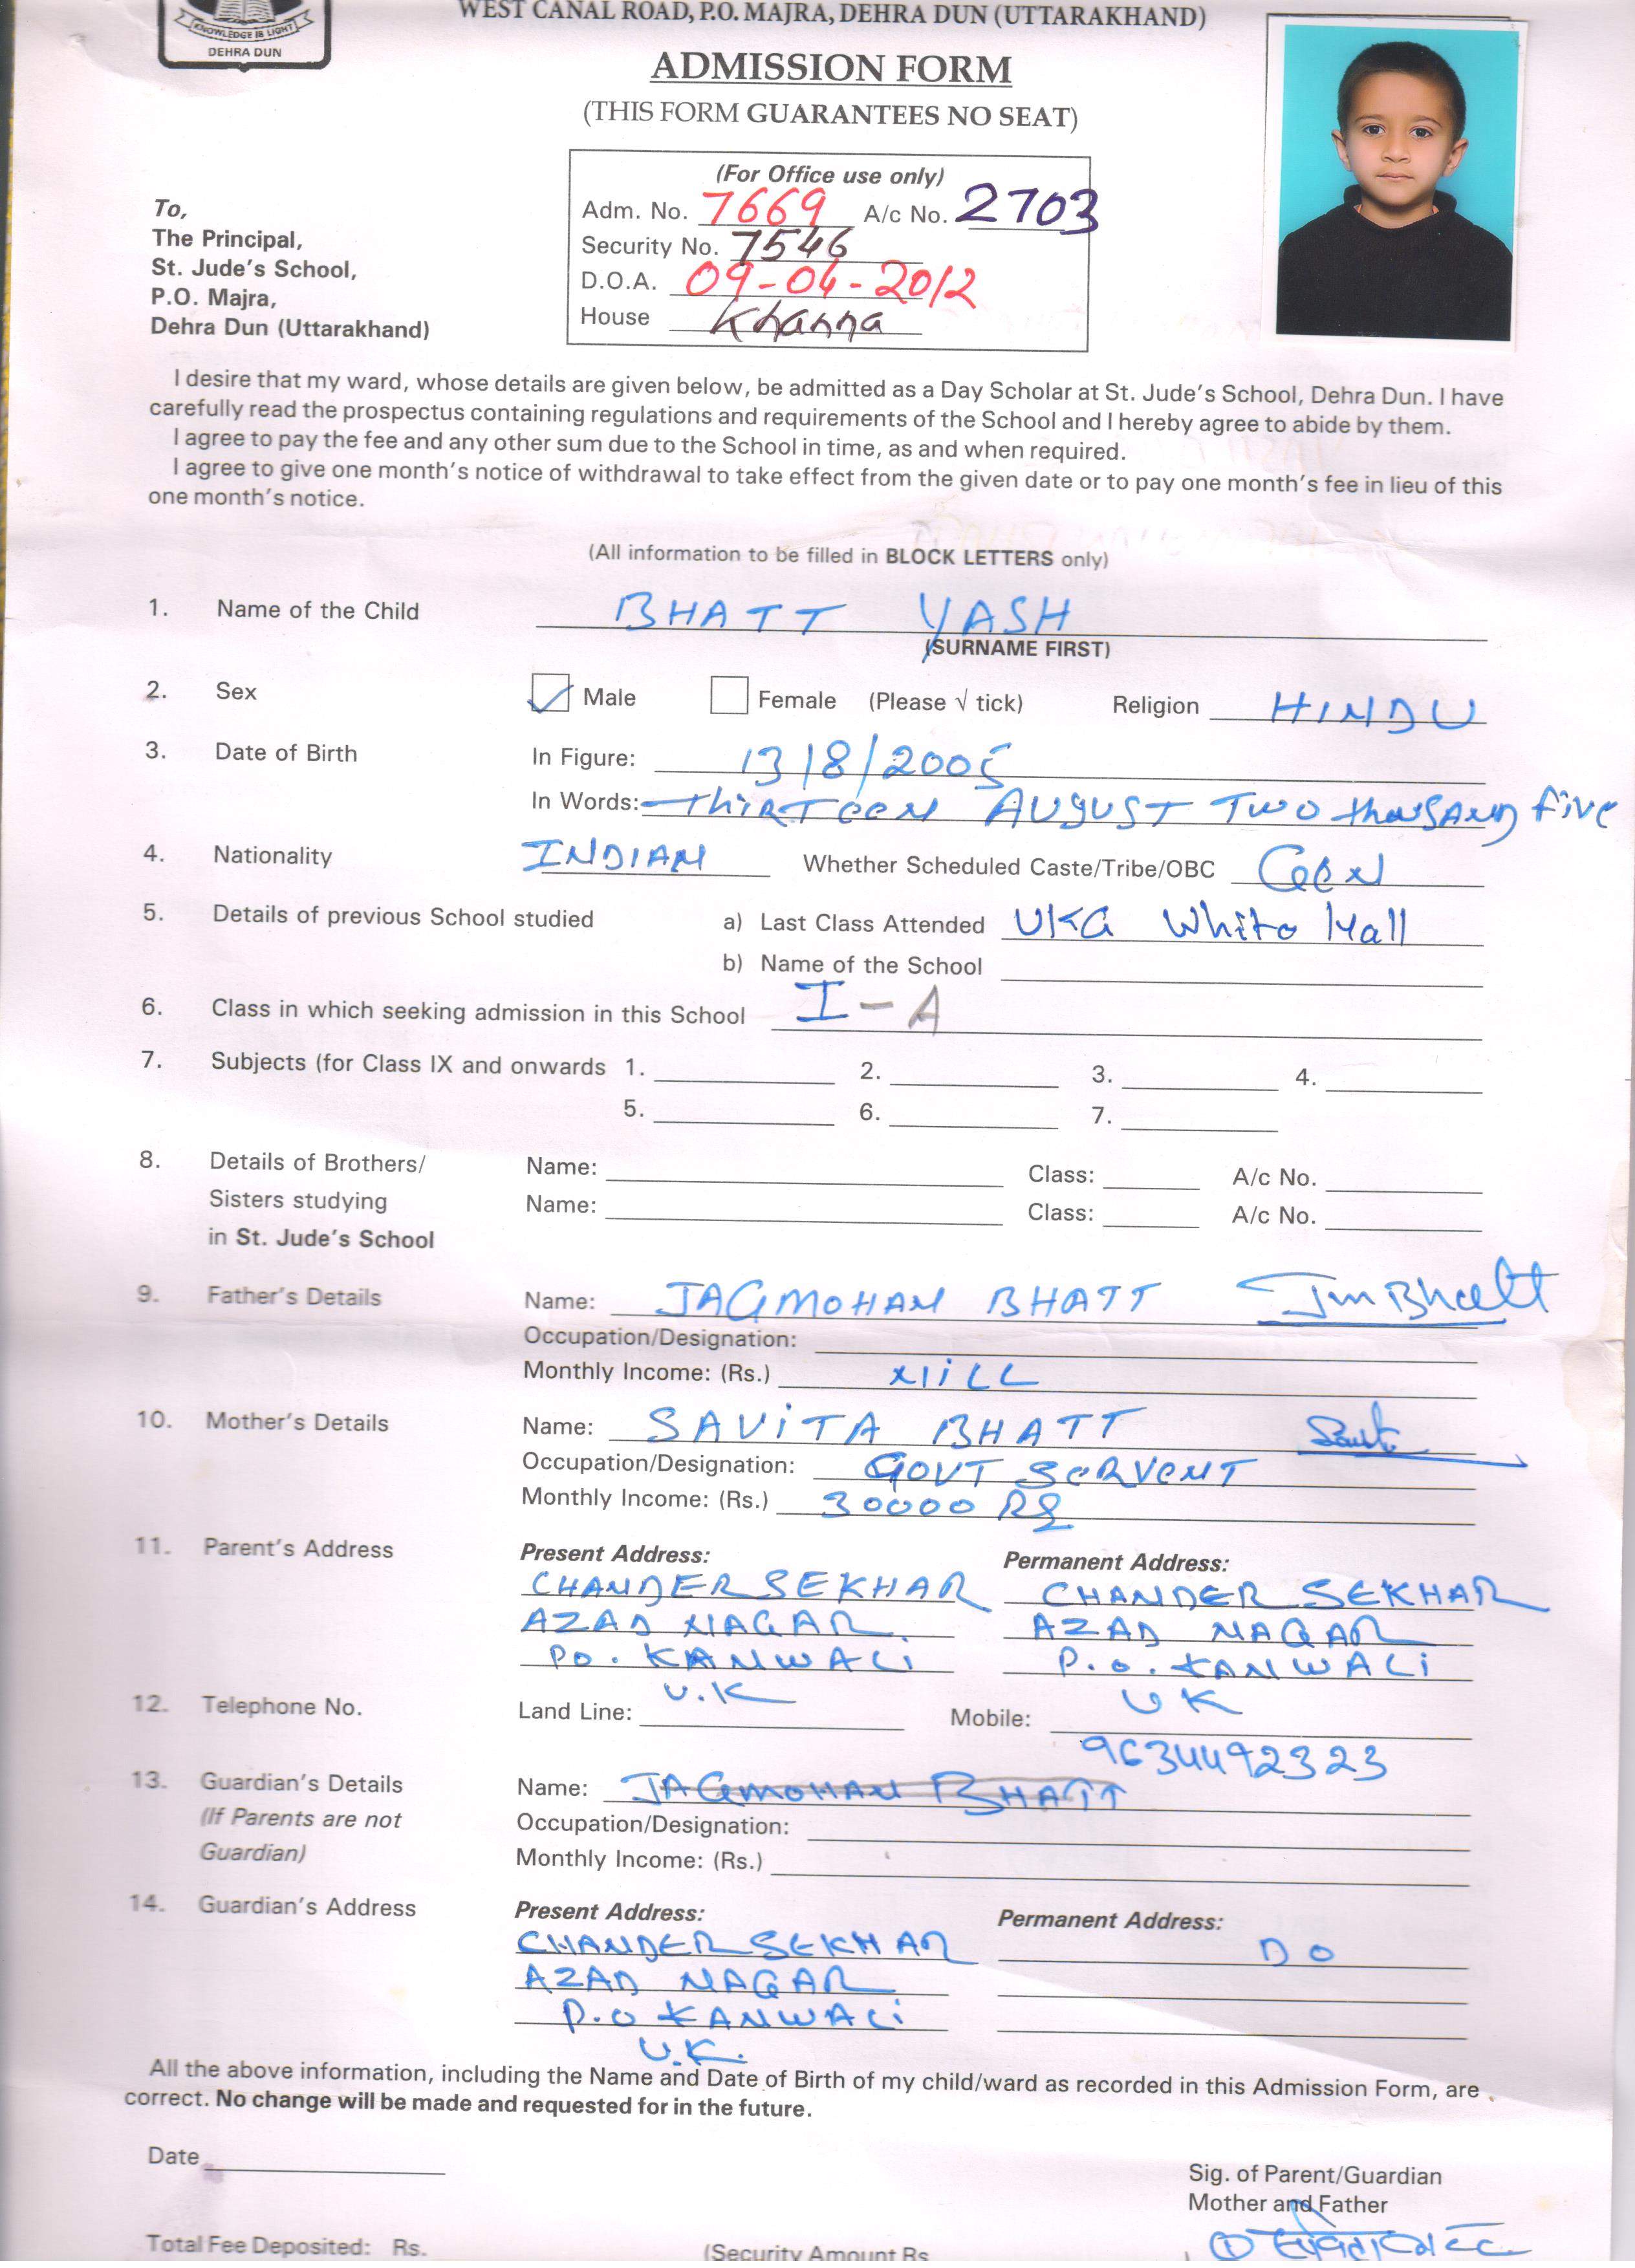 KNOWLEDGE IS LIGHT
DEHRA DUN
WEST CANAL ROAD, P.O. MAJRA, DEHRA DUN (UTTARAKHAND)
ADMISSION FORM
(THIS FORM GUARANTEES NO SEAT)
(For Office use only)
Adm. No. 7669 A/c No. 2703
Security No. 7546
D.O.A. 09-04-2012
House Khanna
To,
The Principal,
St. Jude's School,
P.O. Majra,
Dehra Dun (Uttarakhand)
I desire that my ward, whose details are given below, be admitted as a Day Scholar at St. Jude's School, Dehra Dun. I have
carefully read the prospectus containing regulations and requirements of the School and I hereby agree to abide by them.
I agree to pay the fee and any other sum due to the School in time, as and when required.
I agree to give one month's notice of withdrawal to take effect from the given date or to pay one month's fee in lieu of this
one month's notice.
(All information to be filled in BLOCK LETTERS only)
1. Name of the Child BHATT YASH
(SURNAME FIRST)
2. Sex Male Female (Please √ tick) Religion HINDU
3. Date of Birth In Figure: 13/8/2005
In Words: THIRTEEN AUGUST TWO thouSAND five
4. Nationality INDIAN Whether Scheduled Caste/Tribe/OBC GEN
5. Details of previous School studied a) Last Class Attended UKG White Hall
b) Name of the School
6. Class in which seeking admission in this School I-A
7. Subjects (for Class IX and onwards 1. 2. 3. 4.
5. 6. 7.
8. Details of Brothers/ Name: Class: A/c No.
Sisters studying Name: Class: A/c No.
in St. Jude's School
9. Father's Details Name: JAGMOHAN BHATT JmBhatt
Occupation/Designation:
Monthly Income: (Rs.) NiLL
10. Mother's Details Name: SAViTA BHATT
Occupation/Designation: GOVT SERVENT
Monthly Income: (Rs.) 30000 RS
11. Parent's Address Present Address: Permanent Address:
CHANDER SEKHAR CHANDER SEKHAR
AZAD NAGAR AZAD NAGAR
PO. KANWALi P.O. KANWALi
U.K UK
12. Telephone No. Land Line: Mobile:
9634492323
13. Guardian's Details Name: JAGMOHAN BHATT
(If Parents are not Occupation/Designation:
Guardian) Monthly Income: (Rs.)
14. Guardian's Address Present Address: Permanent Address:
CHANDER SEKHAR DO
AZAD NAGAR
P.O KANWALi
U.K.
All the above information, including the Name and Date of Birth of my child/ward as recorded in this Admission Form, are
correct. No change will be made and requested for in the future.
Date
Sig. of Parent/Guardian
Mother and Father
Total Fee Deposited: Rs. (Security Amount Rs